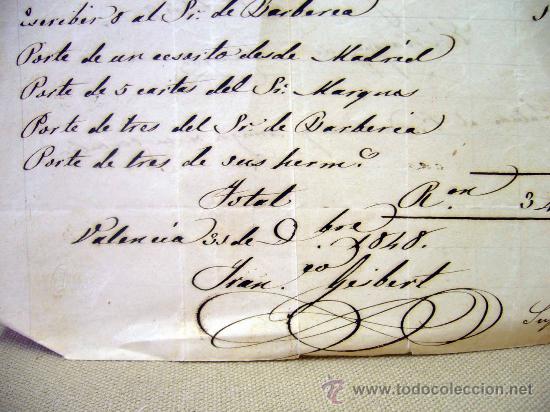 Escribir 8 al Sr. de Barberia
Porte de un ecsorto desde Madrid
Porte de 5 cartas del Sr. Marques
Porte de tres del Sr. de Barberia
Porte de tres de sus herm.os
Total R.on 34
Valencia 31 de Dbre 1848.
Fran.co Gisbert
www.todocoleccion.net